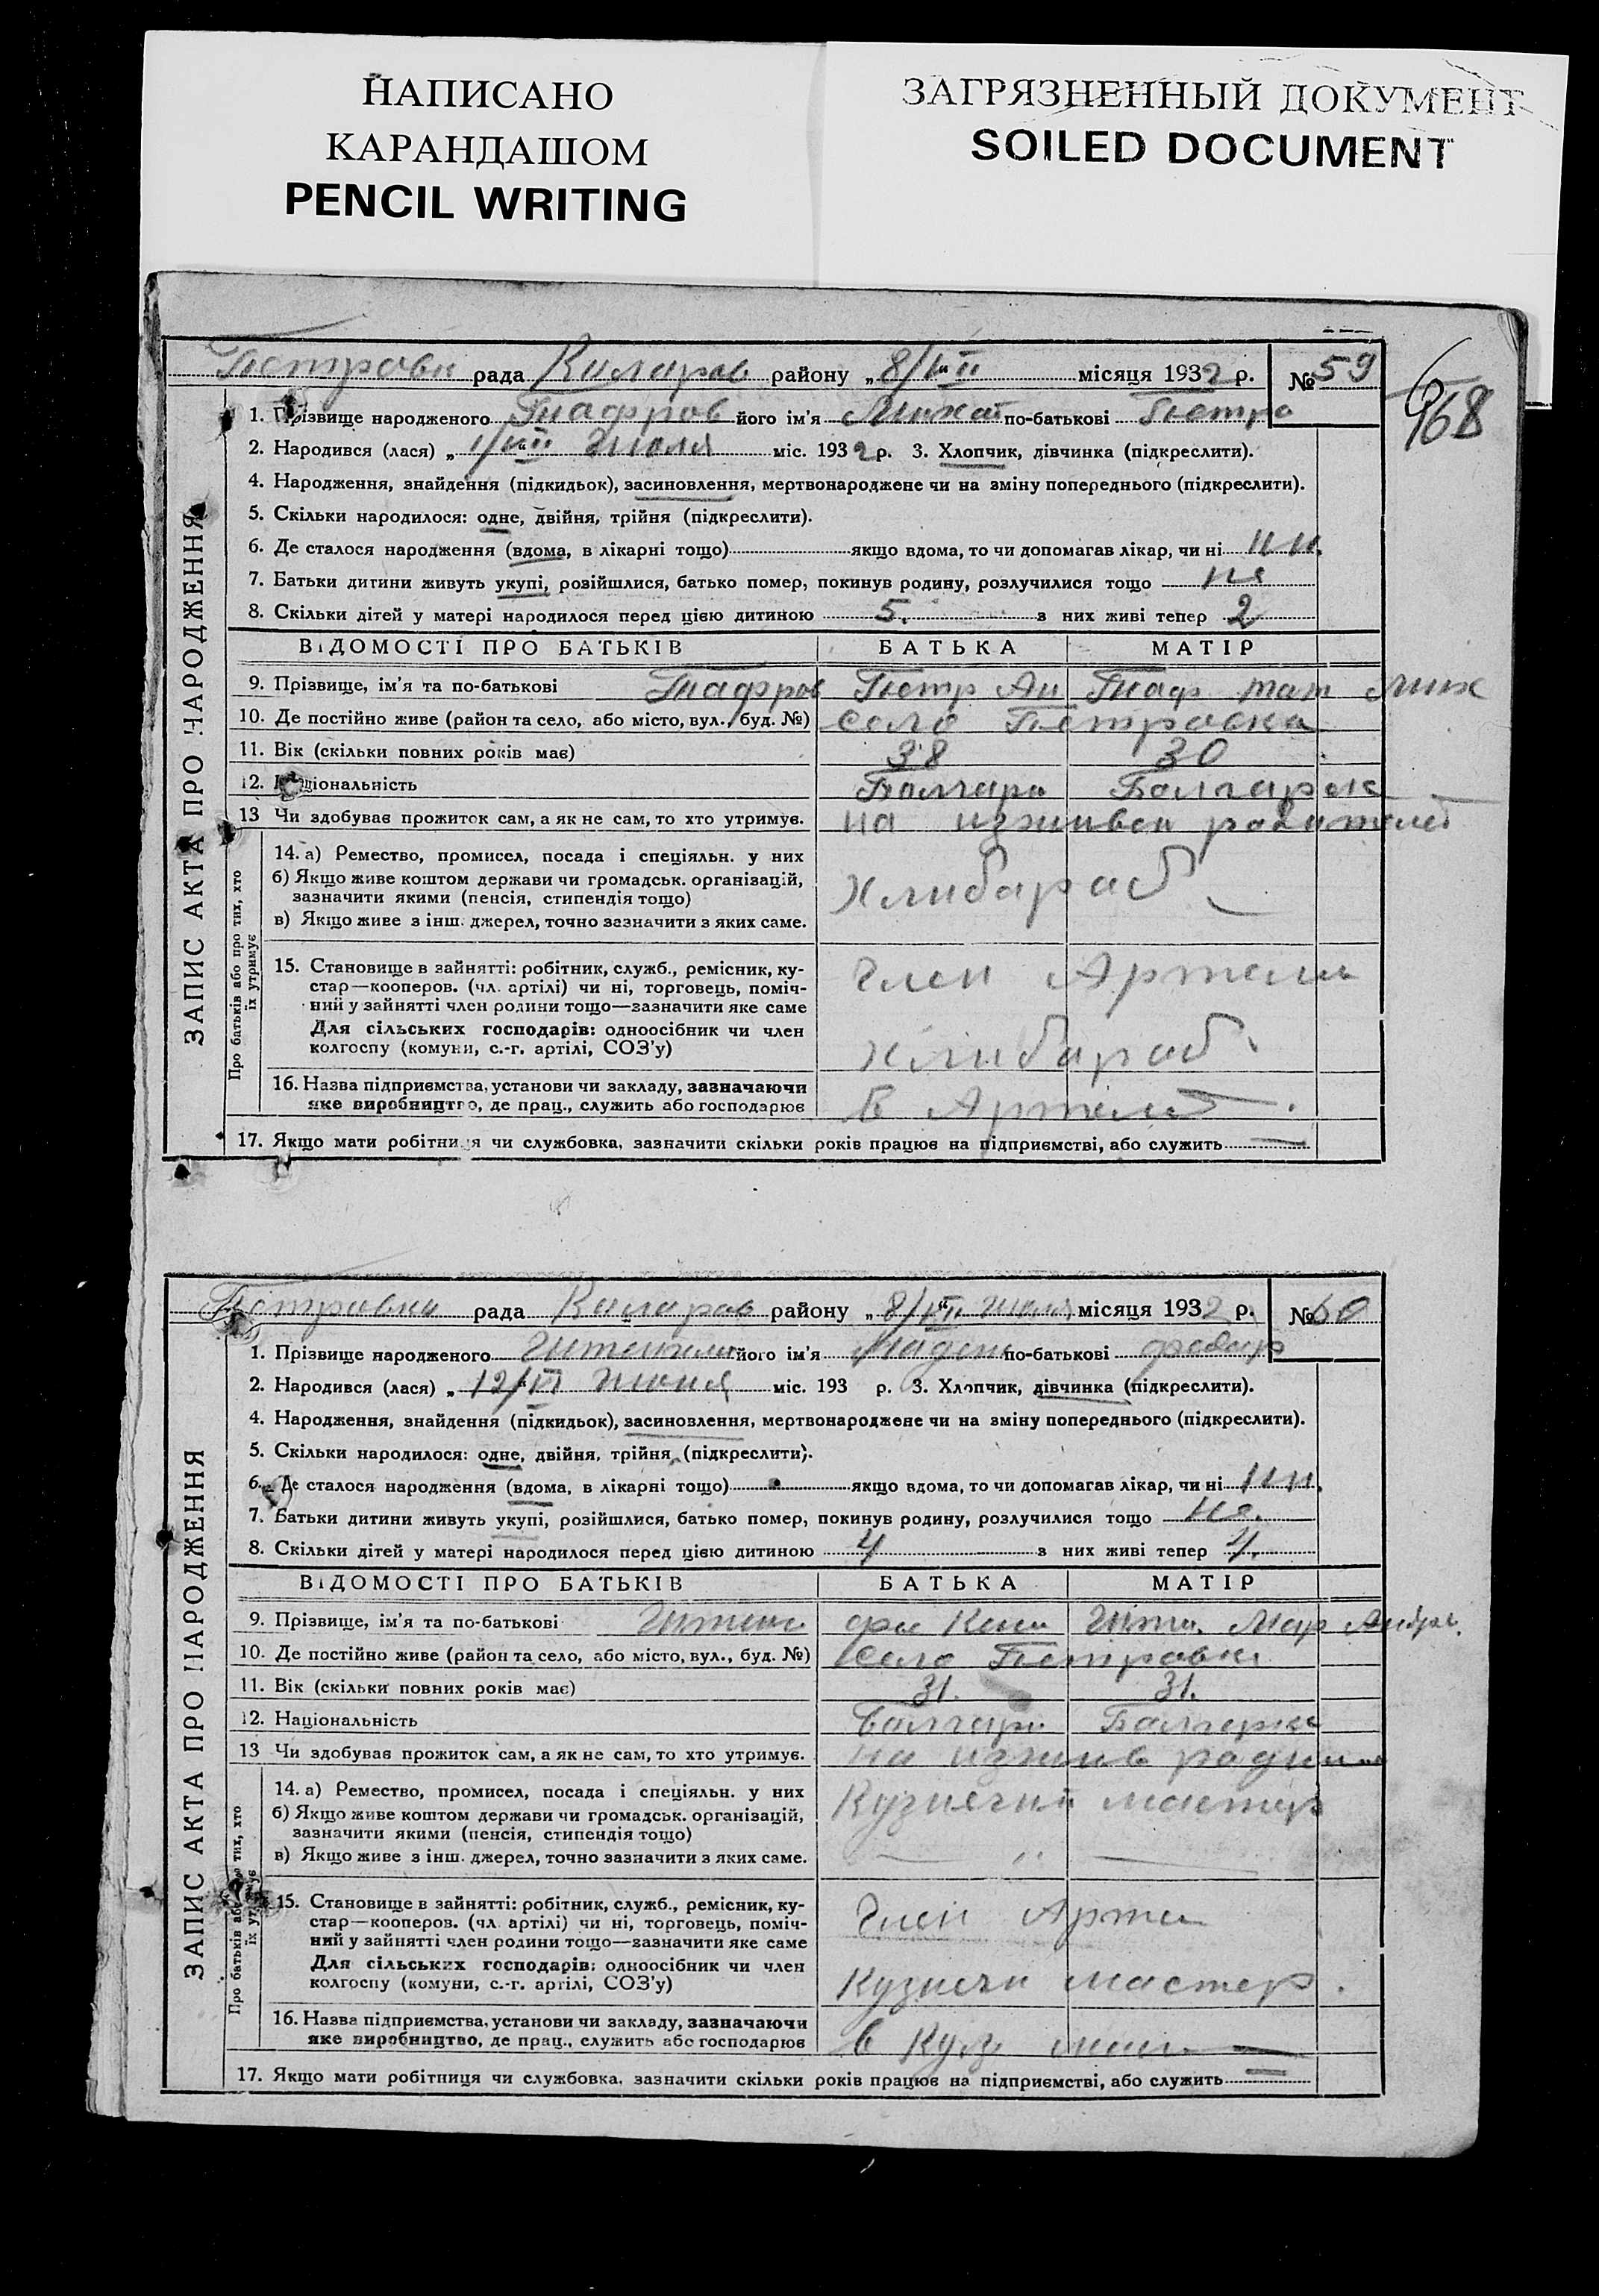 НАПИСАНО
КАРАНДАШОМ
PENCIL WRITING
ЗАГРЯЗНЕННЫЙ ДОКУМЕНТ
SOILED DOCUMENT
рада району „ 8/VII місяця 1932 р. № 59
968
1. Прізвище народженого його ім'я Михай по-батькові Петро
2. Народився (лася) „ 1/VII Июля міс. 1932 р. 3. Хлопчик, дівчинка (підкреслити).
4. Народження, знайдення (підкидьок), засиновлення, мертвонароджене чи на зміну попереднього (підкреслити).
5. Скільки народилося: одне, двійня, трійня (підкреслити).
6. Де сталося народження (вдома, в лікарні тощо) якщо вдома, то чи допомагав лікар, чи ні
7. Батьки дитини живуть укупі, розійшлися, батько помер, покинув родину, розлучилися тощо
8. Скільки дітей у матері народилося перед цією дитиною 5. з них живі тепер 2
ВІДОМОСТІ ПРО БАТЬКІВ БАТЬКА МАТІР
9. Прізвище, ім'я та по-батькові Петр
10. Де постійно живе (район та село, або місто, вул., буд. №) село Петровка
11. Вік (скільки повних років має) 38 30
12. Національність Болгарк
13 Чи здобував прожиток сам, а як не сам, то хто утримує. на родителей
14. а) Ремество, промисел, посада і спеціяльн. у них
б) Якщо живе коштом держави чи громадськ. організацій,
зазначити якими (пенсія, стипендія тощо)
в) Якщо живе з інш. джерел, точно зазначити з яких саме.
Хлибароб
15. Становище в зайнятті: робітник, служб., ремісник, ку-
стар—кооперов. (чл. артілі) чи ні, торговець, поміч-
ний у зайнятті член родини тощо—зазначити яке саме
Член Артели
Для сільських господарів: одноосібник чи член
колгоспу (комуни, с.-г. артілі, СОЗ'у)
хлибароб.
16. Назва підприємства, установи чи закладу, зазначаючи
яке виробництво, де прац., служить або господарює
В Артели
17. Якщо мати робітниця чи службовка, зазначити скільки років працює на підприємстві, або служить
ЗАПИС АКТА ПРО НАРОДЖЕННЯ
Про батьків або про тих, хто
їх утримує
рада району „ 8/VII Июля місяця 1932 р. № 60
1. Прізвище народженого його ім'я по-батькові
2. Народився (лася) „ 12/VI Июня міс. 193 р. 3. Хлопчик, дівчинка (підкреслити).
4. Народження, знайдення (підкидьок), засиновлення, мертвонароджене чи на зміну попереднього (підкреслити).
5. Скільки народилося: одне, двійня, трійня (підкреслити).
6. Де сталося народження (вдома, в лікарні тощо) якщо вдома, то чи допомагав лікар, чи ні
7. Батьки дитини живуть укупі, розійшлися, батько помер, покинув родину, розлучилися тощо
8. Скільки дітей у матері народилося перед цією дитиною 4 з них живі тепер 4.
ВІДОМОСТІ ПРО БАТЬКІВ БАТЬКА МАТІР
9. Прізвище, ім'я та по-батькові
10. Де постійно живе (район та село, або місто, вул., буд. №) село Петровка
11. Вік (скільки повних років має) 31. 31.
12. Національність
13 Чи здобував прожиток сам, а як не сам, то хто утримує. на
14. а) Ремество, промисел, посада і спеціяльн. у них
б) Якщо живе коштом держави чи громадськ. організацій,
зазначити якими (пенсія, стипендія тощо)
в) Якщо живе з інш. джерел, точно зазначити з яких саме.
мастер
15. Становище в зайнятті: робітник, служб., ремісник, ку-
стар—кооперов. (чл. артілі) чи ні, торговець, поміч-
ний у зайнятті член родини тощо—зазначити яке саме
Член Арте
Для сільських господарів: одноосібник чи член
колгоспу (комуни, с.-г. артілі, СОЗ'у)
мастер.
16. Назва підприємства, установи чи закладу, зазначаючи
яке виробництво, де прац., служить або господарює
в Куз
17. Якщо мати робітниця чи службовка, зазначити скільки років працює на підприємстві, або служить
ЗАПИС АКТА ПРО НАРОДЖЕННЯ